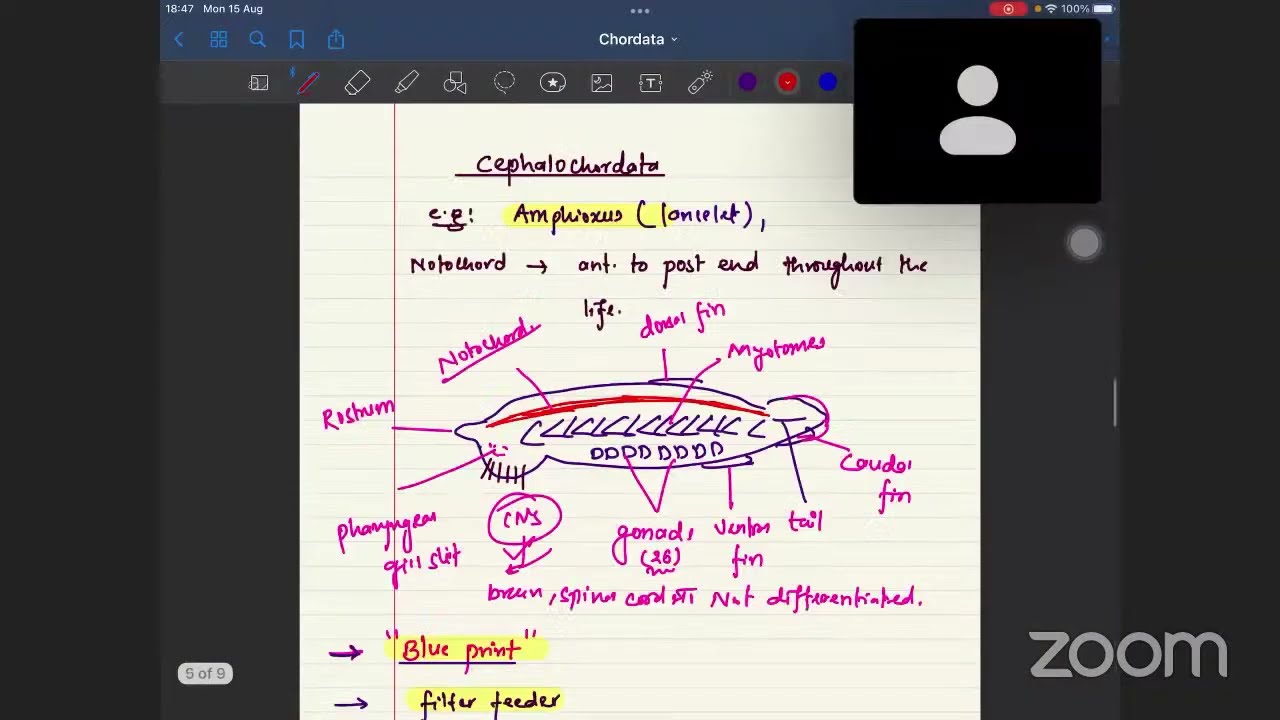 18:47 Mon 15 Aug
100%
Chordata
Cephalochordata
e.g: Amphioxus (lancelet),
Notochord → ant. to post end throughout the
life.
Notochord
dorsal fin
Myotomes
Rostrum
Caudal
fin
pharyngeal
gill slit
CNS
gonads
(26)
ventral
fin
tail
brain, spinal cord Not differentiated.
→ "Blue print"
→ filter feeder
5 of 9
zoom